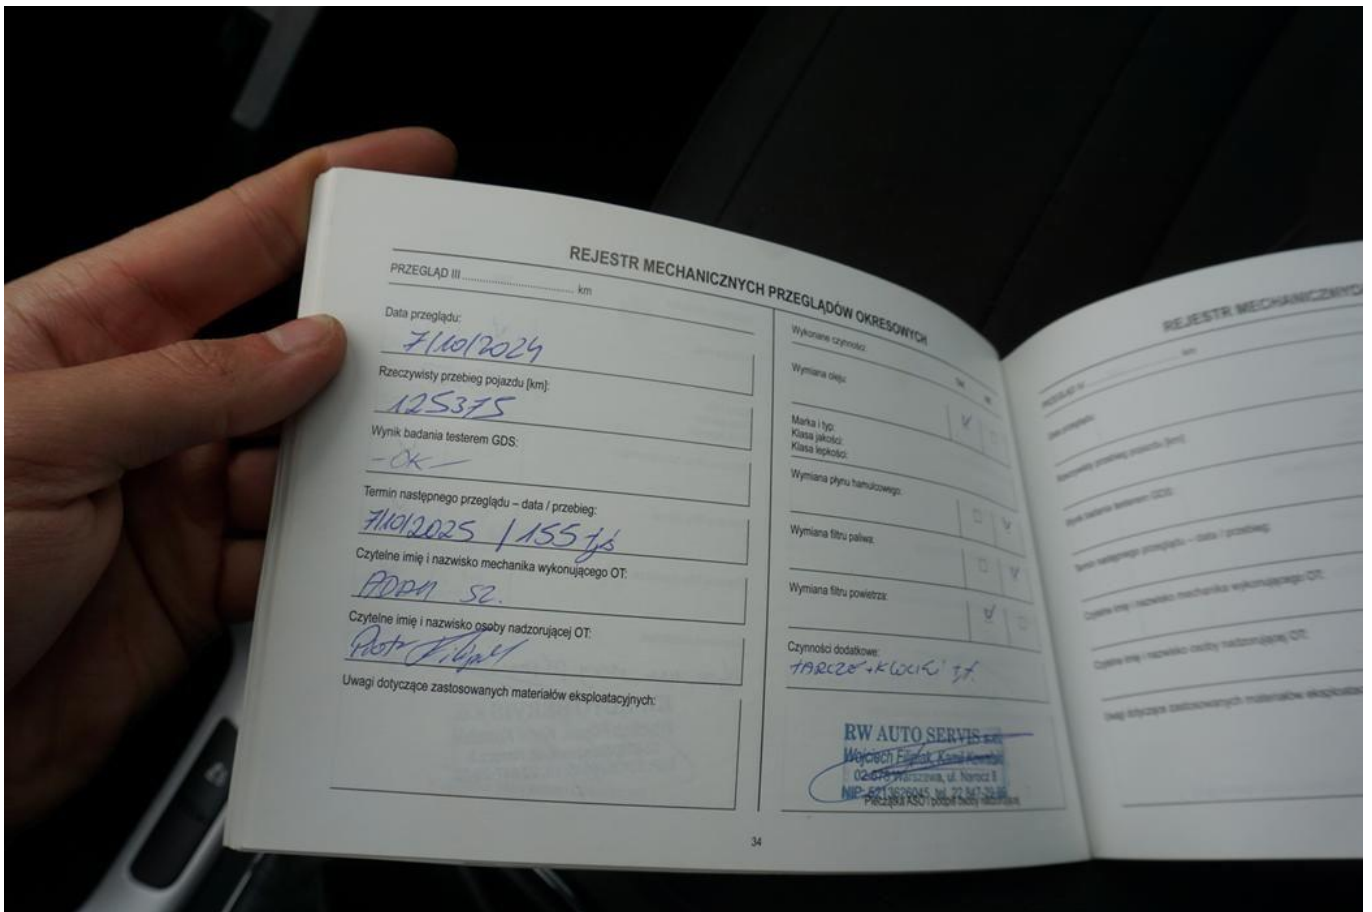 REJESTR MECHANICZNYCH PRZEGLĄDÓW OKRESOWYCH
PRZEGLĄD III ........................................ km
Data przeglądu:
7/10/2024
Rzeczywisty przebieg pojazdu [km]:
125375
Wynik badania testerem GDS:
- OK -
Termin następnego przeglądu – data / przebieg:
7/10/2025 / 155 tyś
Czytelne imię i nazwisko mechanika wykonującego OT:
ADAM SZ.
Czytelne imię i nazwisko osoby nadzorującej OT:
Piotr
Uwagi dotyczące zastosowanych materiałów eksploatacyjnych:
Wykonane czynności:
Wymiana oleju:
Marka i typ:
Klasa jakości:
Klasa lepkości:
Wymiana płynu hamulcowego:
Wymiana filtru paliwa:
Wymiana filtru powietrza:
Czynności dodatkowe:
TARCZE + KLOCKI
RW AUTO SERVIS s.c.
Wojciech Filipiak, Kamil
02-678 Warszawa, ul.
NIP: 5213626045, tel. 22 847-29-
Pieczątka ASO i podpis osoby nadzorującej
34
REJESTR MECHANICZNYCH
km
PRZEGLĄD IV
Data przeglądu:
Rzeczywisty przebieg pojazdu [km]:
Wynik badania testerem GDS:
Termin następnego przeglądu – data / przebieg:
Czytelne imię i nazwisko mechanika wykonującego OT:
Czytelne imię i nazwisko osoby nadzorującej OT:
Uwagi dotyczące zastosowanych materiałów